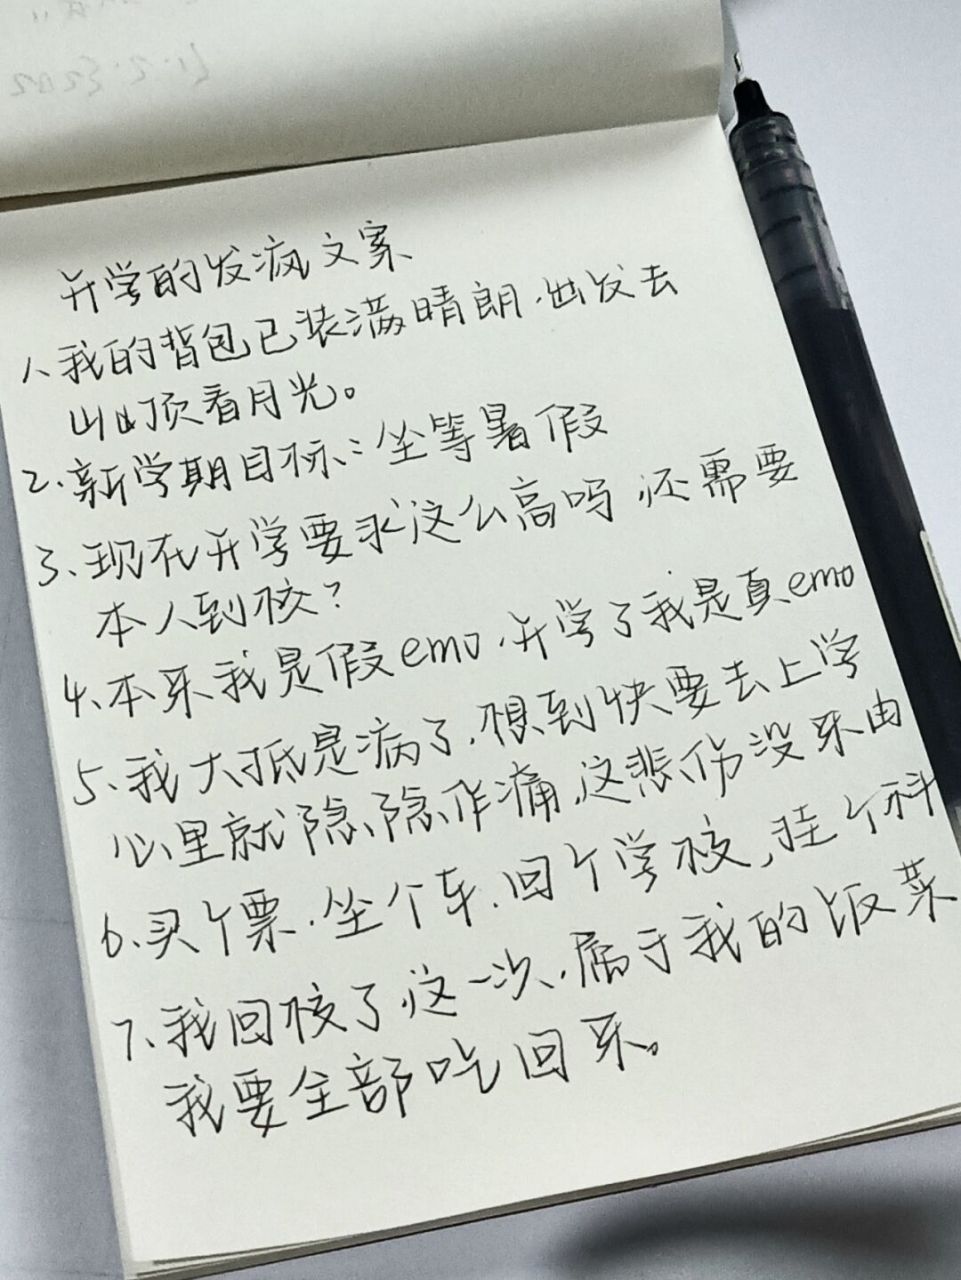 开学的发疯文案
1、我的背包已装满晴朗,出发去
山顶看月光。
2、新学期目标:坐等暑假
3、现在开学要求这么高吗 还需要
本人到校?
4、本来我是假emo,开学了我是真emo
5、我大抵是病了,想到快要去上学
心里就隐隐作痛,这悲伤没来由
6、买个票,坐个车,回个学校,挂个科
7、我回校了,这一次,属于我的饭菜
我要全部吃回来。